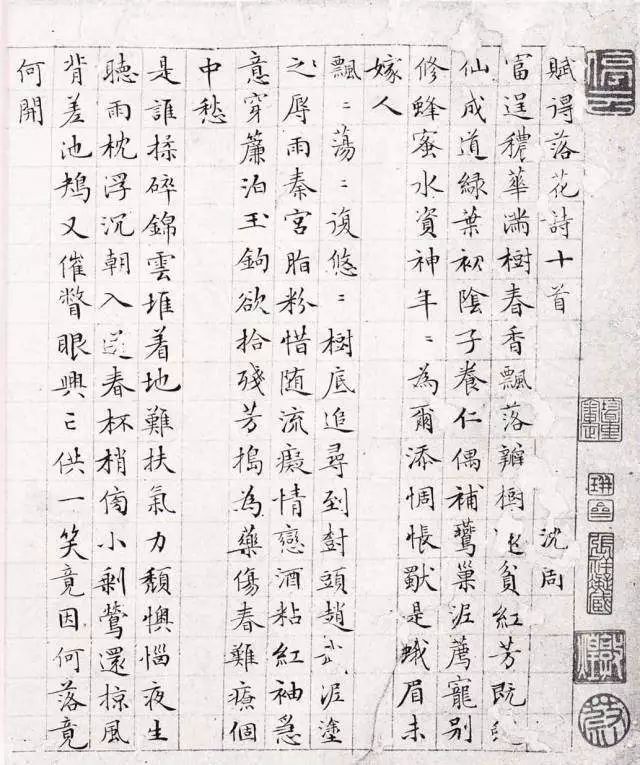 賦得落花詩十首 沈周
富逞穠華滿樹春香飄落瓣樹貧紅芳既
仙成道綠葉初陰子養仁偶補鶯巢泥薦寵別
修蜂蜜水資神年〻為爾添惆悵獨是蛾眉未
嫁人
飄〻蕩〻復悠〻樹底追尋到對頭趙武泥塗
之辱雨秦宮脂粉惜随流癡情戀酒粘紅袖急
意穿簾泊玉鉤欲拾殘芳搗為藥傷春難療個
中愁
是誰揉碎錦雲堆着地難扶氣力頹懊惱夜生
聽雨枕浮沉朝入送春杯梢傍小剩鶯還掠風
背差池鴂又催瞥眼興亡供一笑竟因何落竟
何開